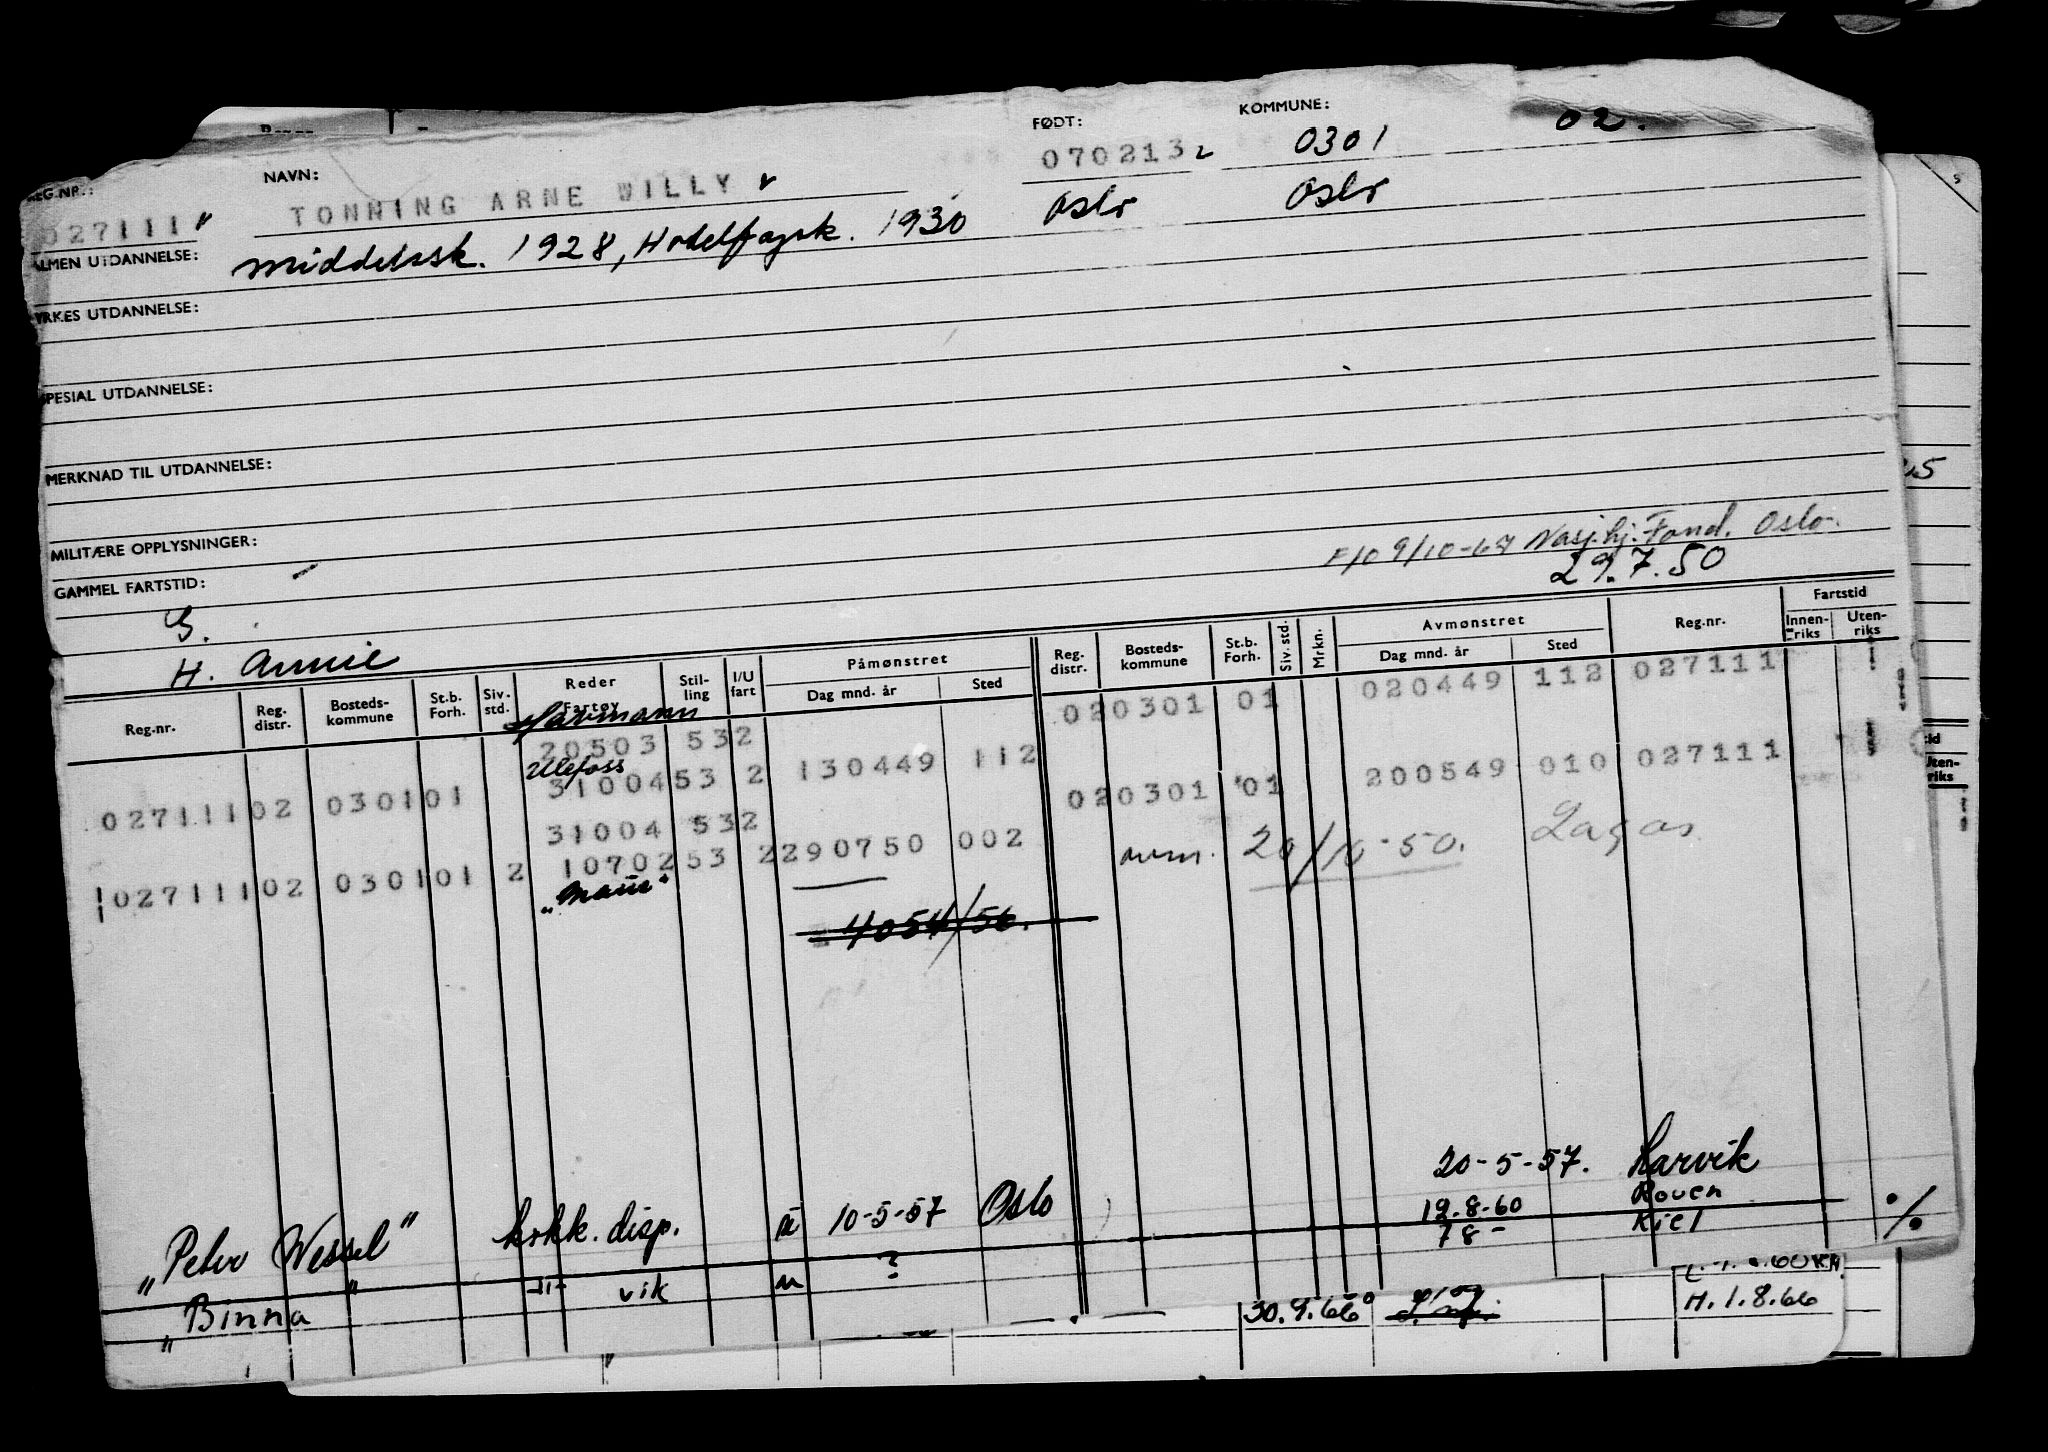 FØDT: KOMMUNE: 02.
REG.NR.: NAVN: 070213 2 0301
027111 TONNING ARNE WILLY Oslo Oslo
ALMEN UTDANNELSE: Middelssk. 1928, Hotelfagsk. 1930
YRKES UTDANNELSE:
SPESIAL UTDANNELSE:
MERKNAD TIL UTDANNELSE:
MILITÆRE OPPLYSNINGER: F/O 9/10-67 Nasj.hj. Fond. Oslo.
GAMMEL FARTSTID: 29.7.50
G.
H. Annie
Reg.nr. Reg. distr. Bosteds-kommune St.b. Forh. Siv. std. Reder Fartøy Stil-ling I/U fart Påmønstret Dag mnd. år Sted Reg. distr. Bosteds-kommune St.b. Forh. Siv. std. Mrkn. Avmønstret Dag mnd. år Sted Reg.nr. Fartstid Innen-riks Uten-riks
Havmann
20503 532 020301 01 020449 112 027111
Ulefoss
027111 02 0301 01 31004 53 2 130449 112 020301 01 200549 010 027111
31004 532
027111 02 0301 01 2 10702 53 2 290750 002 avm. 20/10-50. Lagos
4054/56.
20-5-57. Larvik
"Peter Wessel" kokk. disp. 10-5-57 Oslo 19.8.60 Rouen
78- Kiel
"Binna" -"- vik ? ./.
30.9.66 H.1.8.66